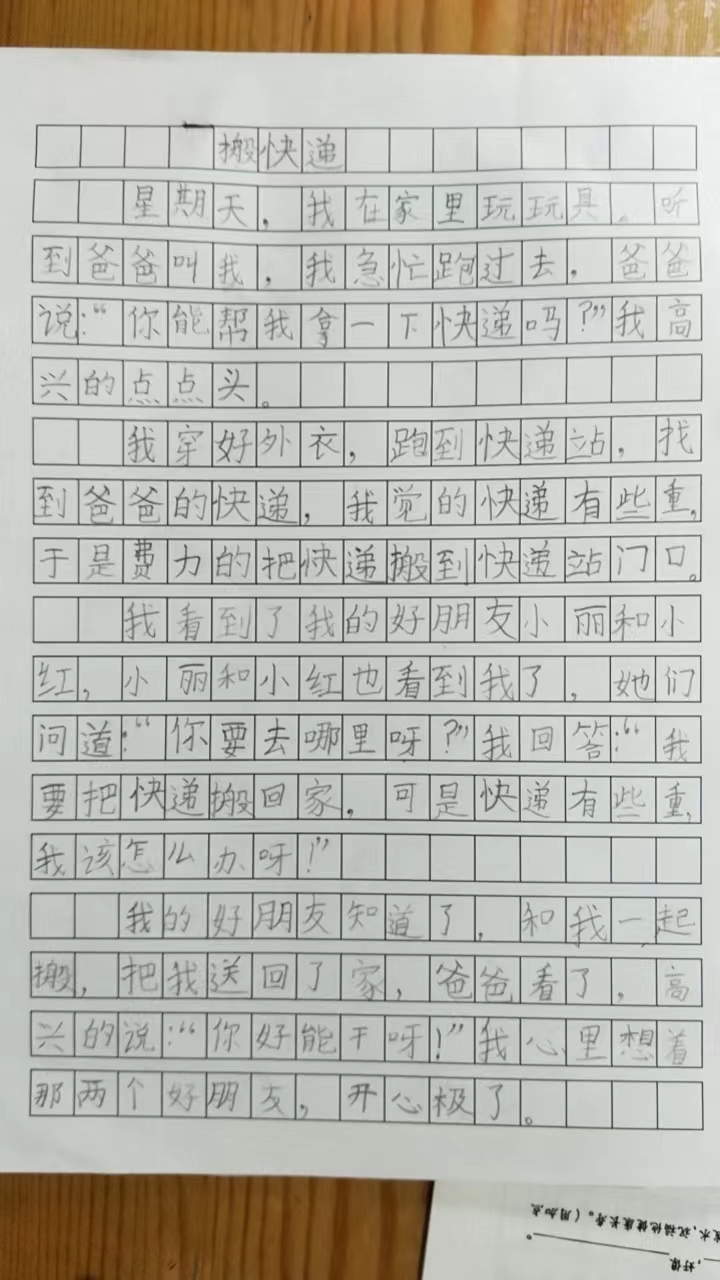 搬快递
星期天，我在家里玩玩具。听
到爸爸叫我，我急忙跑过去，爸爸
说：“你能帮我拿一下快递吗？”我高
兴的点点头。
我穿好外衣，跑到快递站，找
到爸爸的快递，我觉的快递有些重，
于是费力的把快递搬到快递站门口。
我看到了我的好朋友小丽和小
红，小丽和小红也看到我了，她们
问道：“你要去哪里呀？”我回答：“我
要把快递搬回家，可是快递有些重，
我该怎么办呀！”
我的好朋友知道了，和我一起
搬，把我送回了家，爸爸看了，高
兴的说：“你好能干呀！”我心里想着
那两个好朋友，开心极了。
水，祝福他健康长寿。（用加点
，好像
。